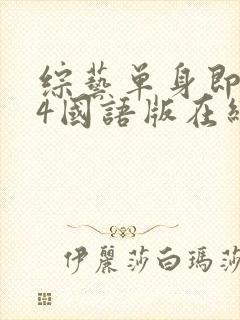 綜藝單身即
4國語版在
伊麗莎白瑪莎